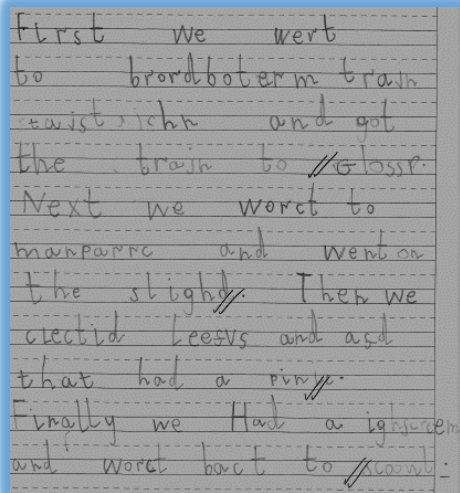 First we wert
to brordboterm train
and got
the train to Glossp.
Next we worct to
manparrc and went on
the slighd. Then we
clectid Leesvs and asd
that had a pink.
Finally we Had a ighscreem
and worct bact to scoowl.